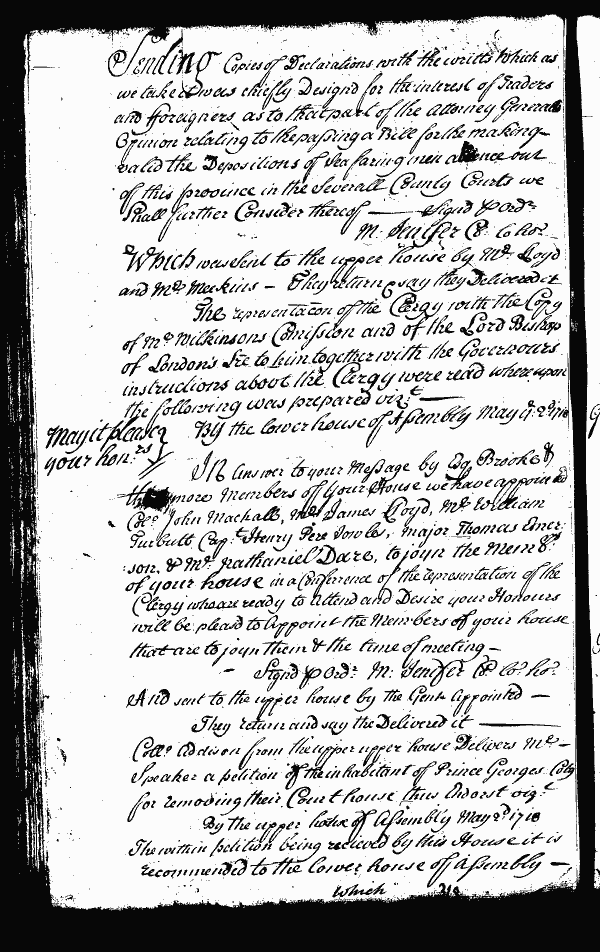 Sending Copies of Declarations with the writts which as
we take it was chiefly Designd for the interest of Traders
and fforeigners, as to that part of the Attorney Generals
Opinion relating to the passing a Bill for the making
valid the Depositions of Sea faring men out
of this province in the Severall County Courts we
Shall further Consider thereof — Signd p Ordr
M. Jenifer Cl. lo: hos.
Which was sent to the upper house by Mr. Lloyd
and Mr. Meekins — They return & say they Delivered it
The representacon of the Clergy with the Copy
of Mr. Wilkinsons Comission and of the Lord Bishop
of London's Lre to him together with the Governours
instructions about the Clergy were read whereupon
the following was prepared vizt —
By the lower house of Assembly May ye 2d 1718
May it please
your honrs
In Answer to your Message by Coll Brooke &
more Members off Your House we have appointed
Coll John Mackall, Mr. James Lloyd, Mr. William
Turbutt, Capt. Henry Pere Jowles, Major Thomas Emer-
son, & Mr. Nathaniel Dare, to joyn the Membrs
of your house in a Conference of the representation of the
Clergy who are ready to attend and Desire your Honours
will be pleasd to Appoint the Members of your house
that are to joyn them & the time of meeting —
Signd p Ordr M: Jenifer Cl. lo: hos.
And sent to the upper house by the Gent. Appointed —
They return and say the Delivered it —
Collo Addison from the upper upper house Delivers Mr. —
Speaker a petition of the inhabitant of Prince Georges Coty
for removing their Court house thus Endorst vizt
By the upper house of Assembly May 2d 1718
The within petition being recieved by this House it is
recommended to the lower house of Assembly —
which